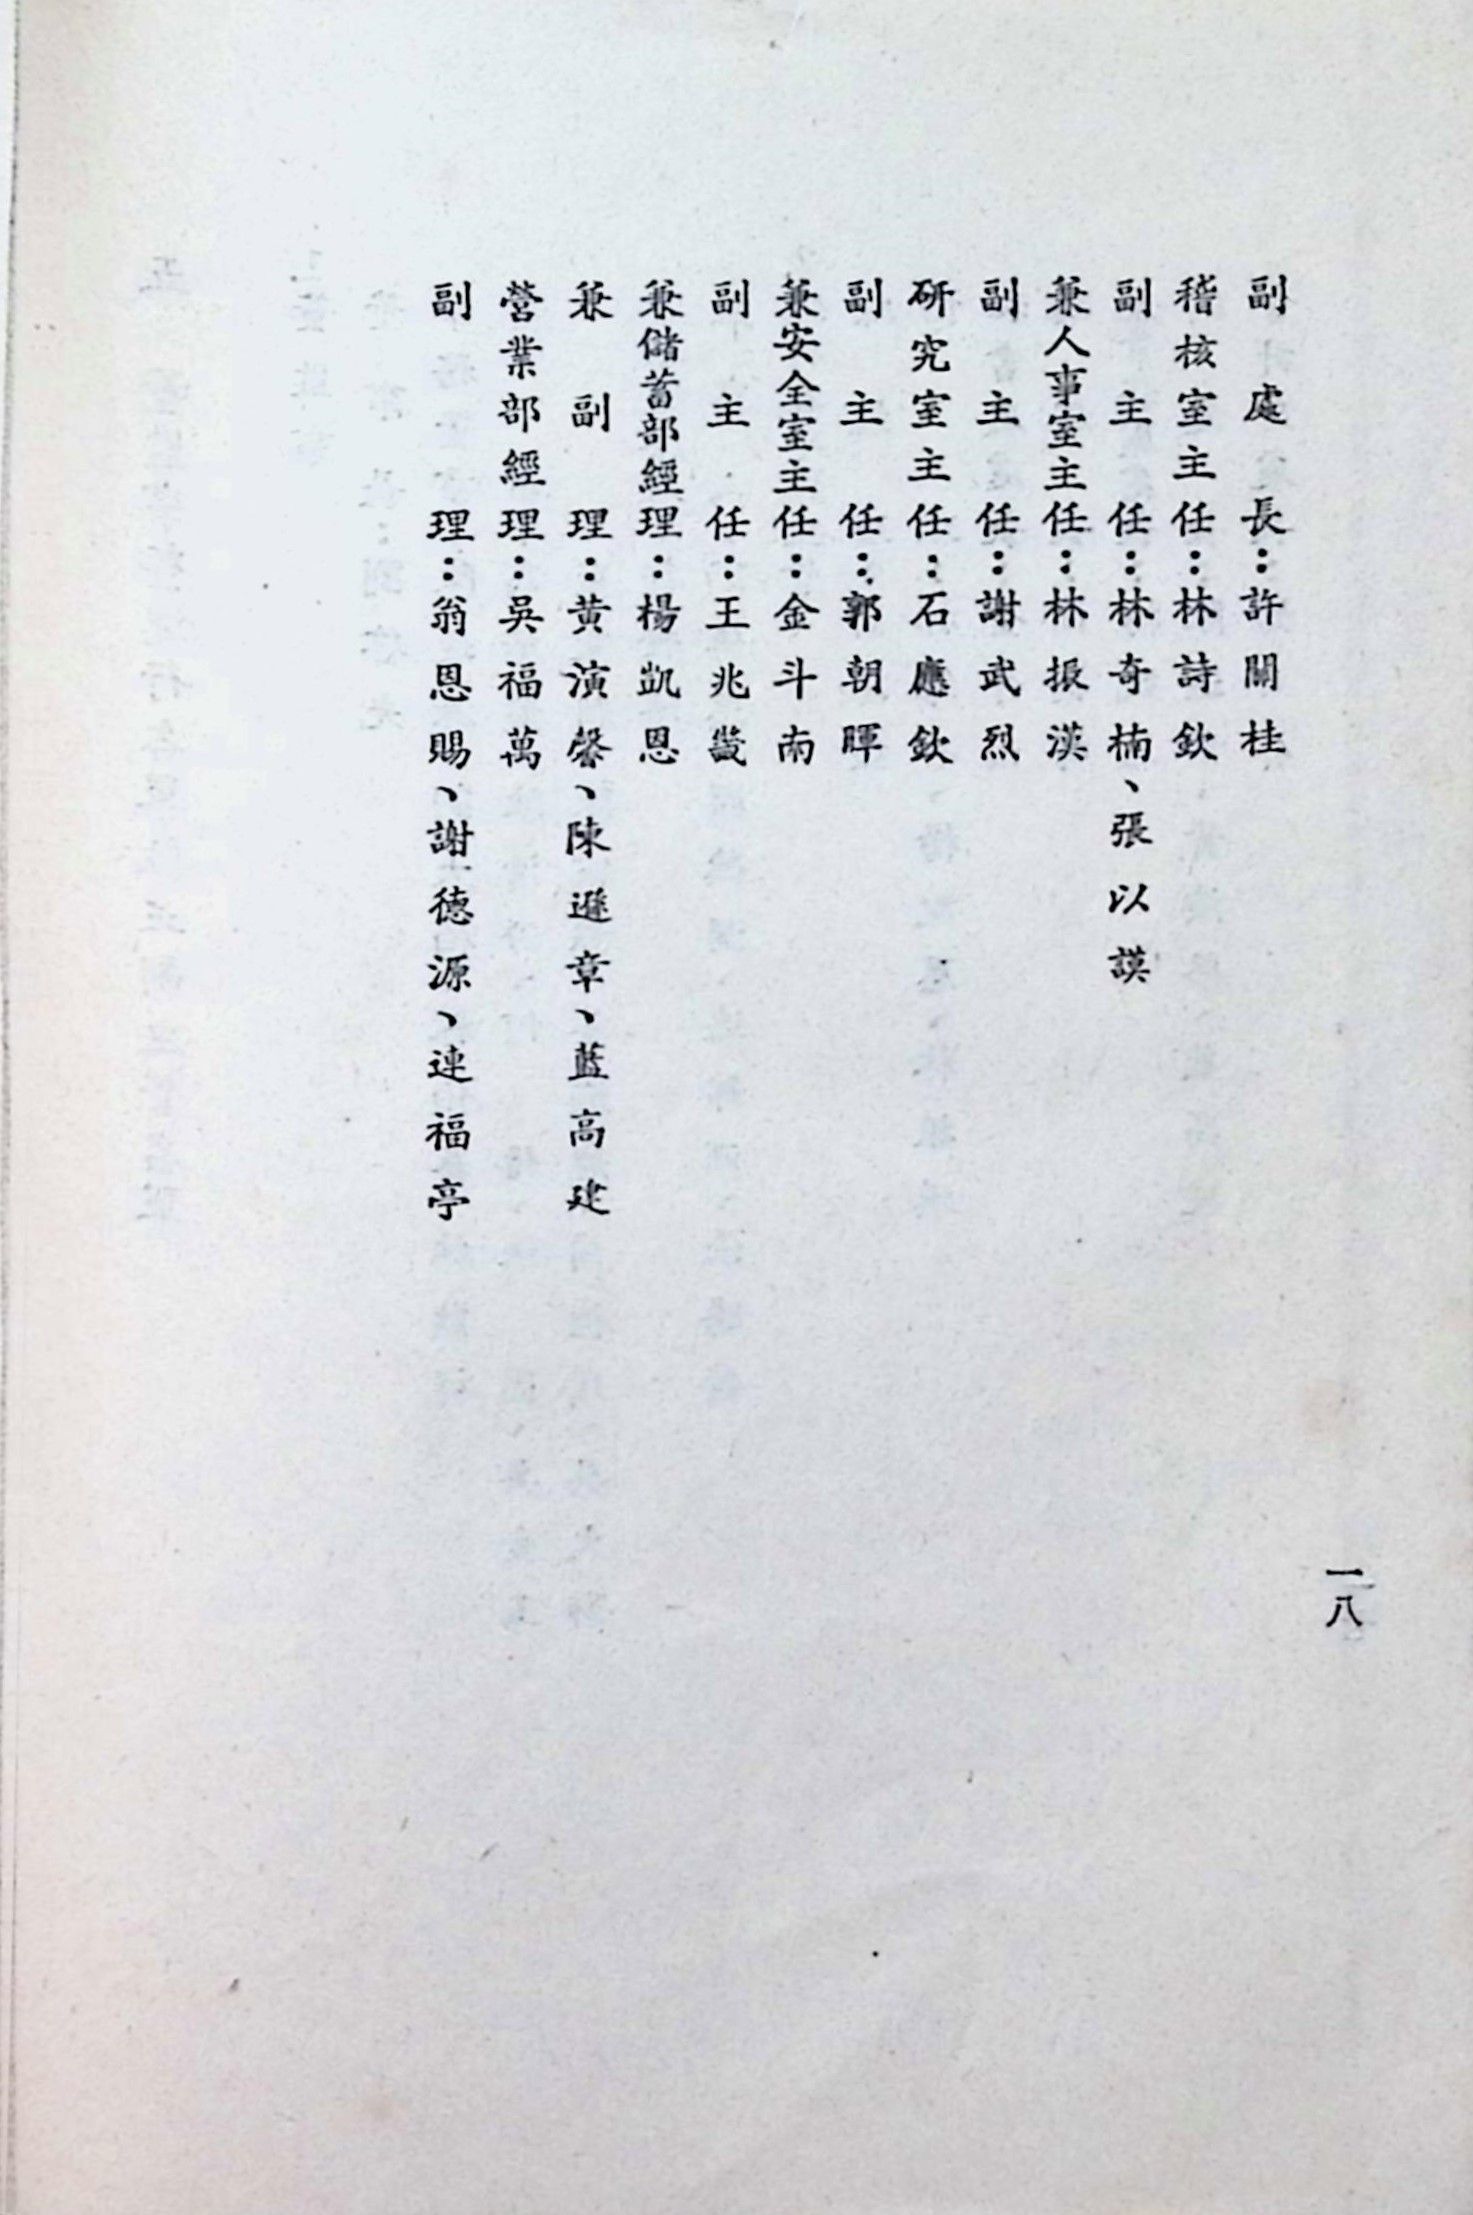 副處長：許關桂
稽核室主任：林詩欽
副主任：林奇楠、張以謨
兼人事室主任：林振漢
副主任：謝武烈
研究室主任：石應欽
副主任：郭朝暉
兼安全室主任：金斗南
副主任：王兆畿
兼儲蓄部經理：楊凱恩
兼副理：黃演馨、陳遜章、藍高建
營業部經理：吳福萬
副理：翁恩賜、謝德源、連福亭
一八